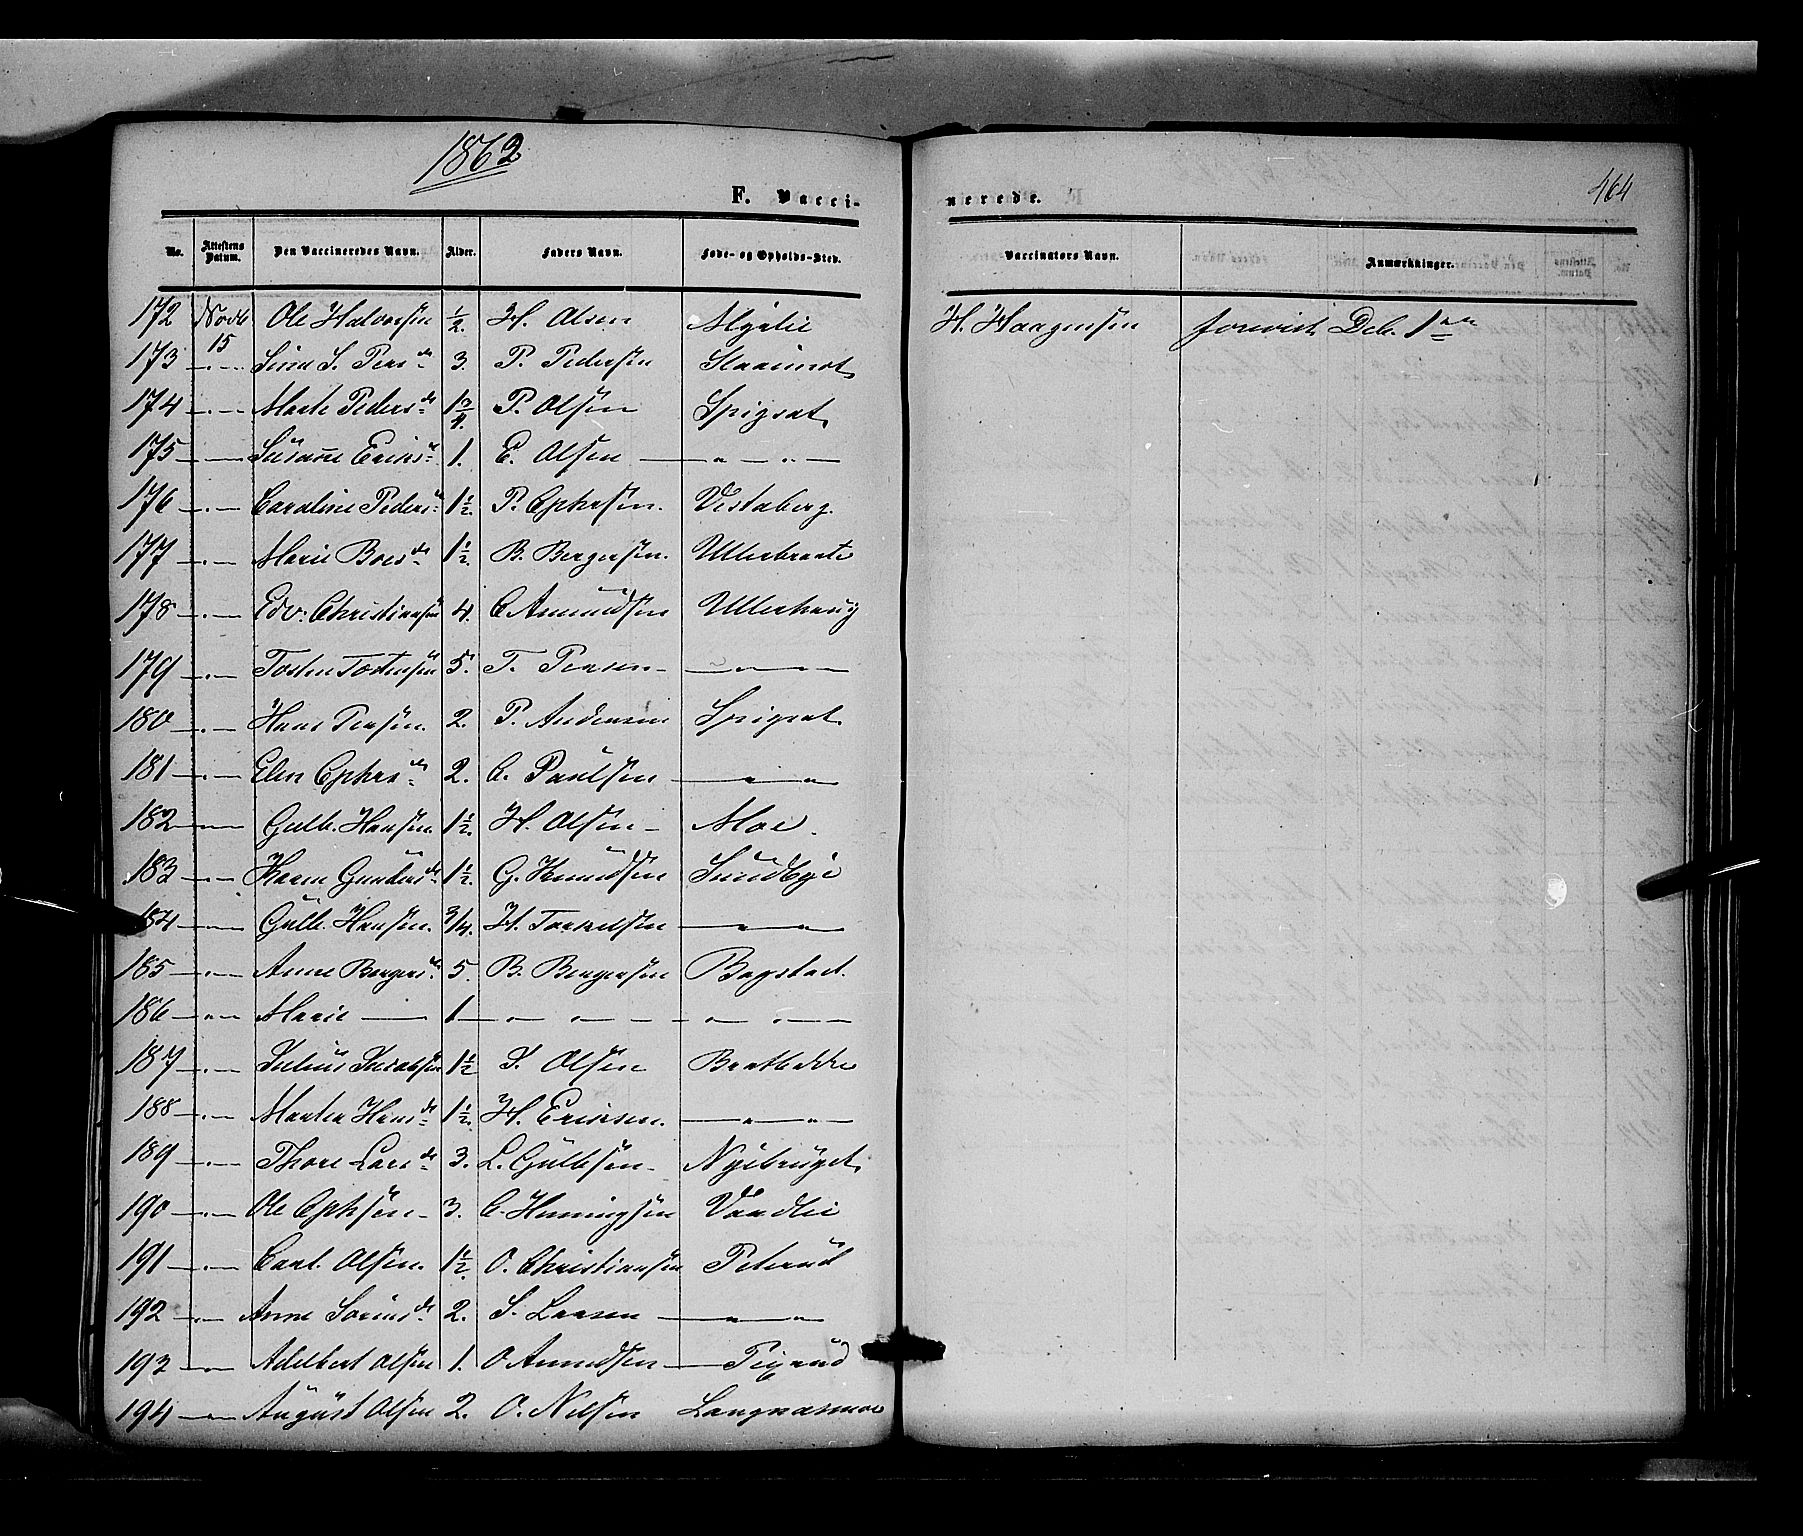 1862
464
F. Vacci-
nerede.
No. Attestens Datum. Den Vaccineredes Navn. Alder. Faders Navn. Føde- og Opholds-Sted. Vaccinators Navn. Anmærkninger.
172 Novb 15 Ole Halvorsen 1/2. H. Olsen H. Haagensen forevist Deb. 1
173 " Pers d. 3. P. Pedersen
174 " Marte Peders d. 1 3/4. P. Olsen Spigset
175 " Susanne Eriks d. 1. E. Olsen " "
176 " Caroline Peders d. 1 1/2. P. Ephrsen. Vestaberg.
177 " Marie Boes d. 1 1/2. B. Bergersen. Ullerbraate
178 " Edv. Christiansen 4. C Amundsen Ullerhaug
179 " Tosten 5. T. " "
180 " Hans 2. P. Andersen Spigset
181 " Elen Ephrs d. 2. E. Paulsen " "
182 " Gulb. Hansen. 1 1/2. H. Olsen Moe.
183 " Karen Gunders d. 1 1/2. G. Knudsen Sundbye
184 " Gulb. Hansen. 3/4. H. Torkelsen " "
185 " Anne Bergers d. 5. B. Bergersen Bogstad.
186 " Marie 1 " " " " "
187 " Julius 1 1/2 J. Olsen Bratbakke
188 " Martea Hans d. 1 1/2. H. Eriksen. " "
189 " Thore Lars d. 3. L. Gulbsen Nyebruget
190 " Ole Ephsen 3. E. Henningsen
191 " Carl Olsen. 1 1/2. O. Christiansen Peterud
192 " Anne Sorens d. 2. S. Larsen " "
193 " Adelbert Olsen 1. O Amundsen
194 " August Olsen 2. O. Nilsen Langnasmoe